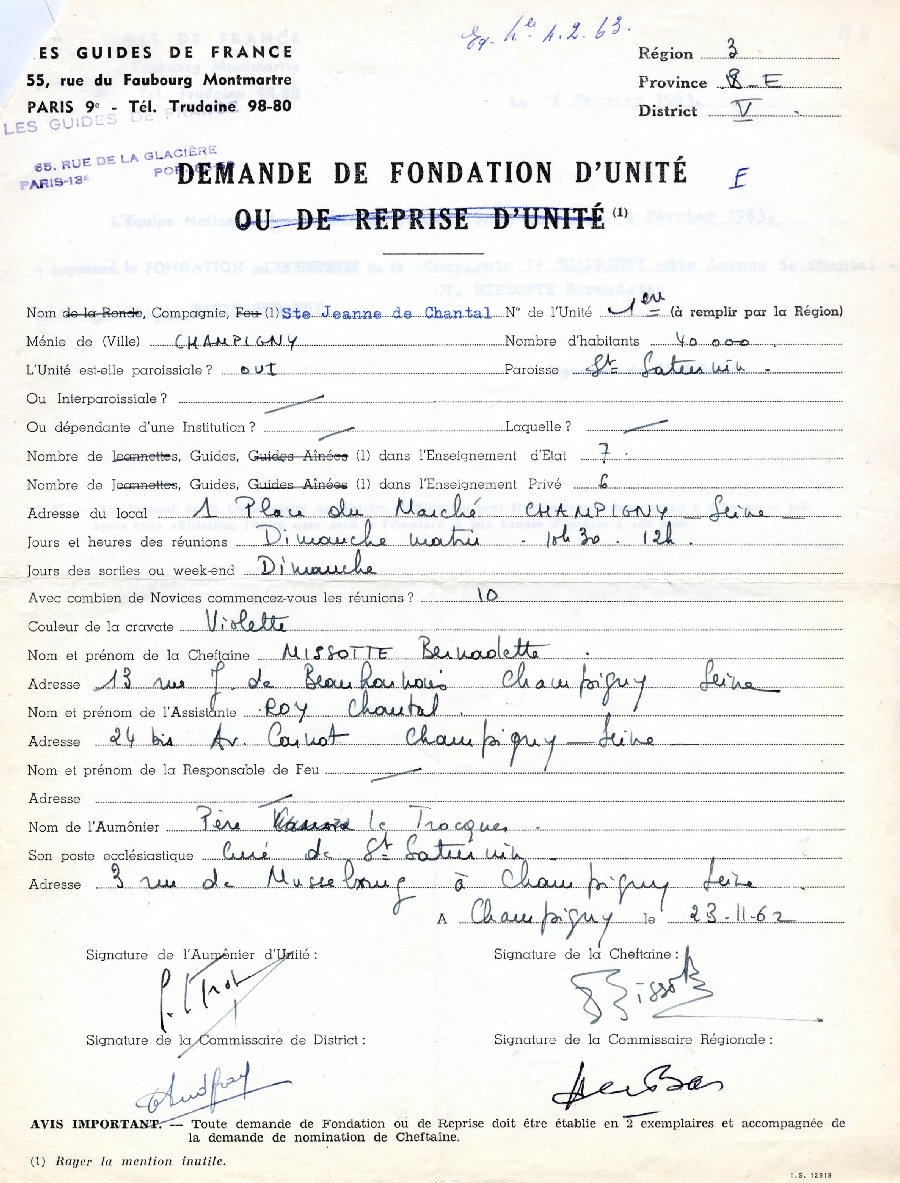 LES GUIDES DE FRANCE
55, rue du Faubourg Montmartre
PARIS 9e - Tél. Trudaine 98-80
LES GUIDES DE FRANCE
65, RUE DE LA GLACIÈRE
PARIS-13e
Région 3
Province 8-E
District V
DEMANDE DE FONDATION D'UNITÉ E
OU DE REPRISE D'UNITÉ (1)
Nom de la Ronde, Compagnie, Feu (1) Ste Jeanne de Chantal N° de l'Unité 1ère (à remplir par la Région)
Ménie de (Ville) CHAMPIGNY Nombre d'habitants 40 000
L'Unité est-elle paroissiale ? OUI Paroisse St Saturnin
Ou Interparoissiale ?
Ou dépendante d'une Institution ? Laquelle ?
Nombre de Jeannettes, Guides, Guides Aînées (1) dans l'Enseignement d'Etat 7
Nombre de Jeannettes, Guides, Guides Aînées (1) dans l'Enseignement Privé 6
Adresse du local 1 Place du Marché CHAMPIGNY Seine
Jours et heures des réunions Dimanche matin - 10h30 - 12h.
Jours des sorties ou week-end Dimanche
Avec combien de Novices commencez-vous les réunions ? 10
Couleur de la cravate Violette
Nom et prénom de la Cheftaine MISSOTTE Bernadette
Adresse 13 rue J. de Beauharnais Champigny Seine
Nom et prénom de l'Assistante ROY Chantal
Adresse 24 bis Av. Carnot Champigny - Seine
Nom et prénom de la Responsable de Feu
Adresse
Nom de l'Aumônier Père le Trocquer
Son poste ecclésiastique Curé de St Saturnin
Adresse 3 rue de Musselburg à Champigny Seine
A Champigny le 23-11-62
Signature de l'Aumônier d'Unité : Signature de la Cheftaine :
Signature de la Commissaire de District : Signature de la Commissaire Régionale :
AVIS IMPORTANT. — Toute demande de Fondation ou de Reprise doit être établie en 2 exemplaires et accompagnée de
la demande de nomination de Cheftaine.
(1) Rayer la mention inutile.